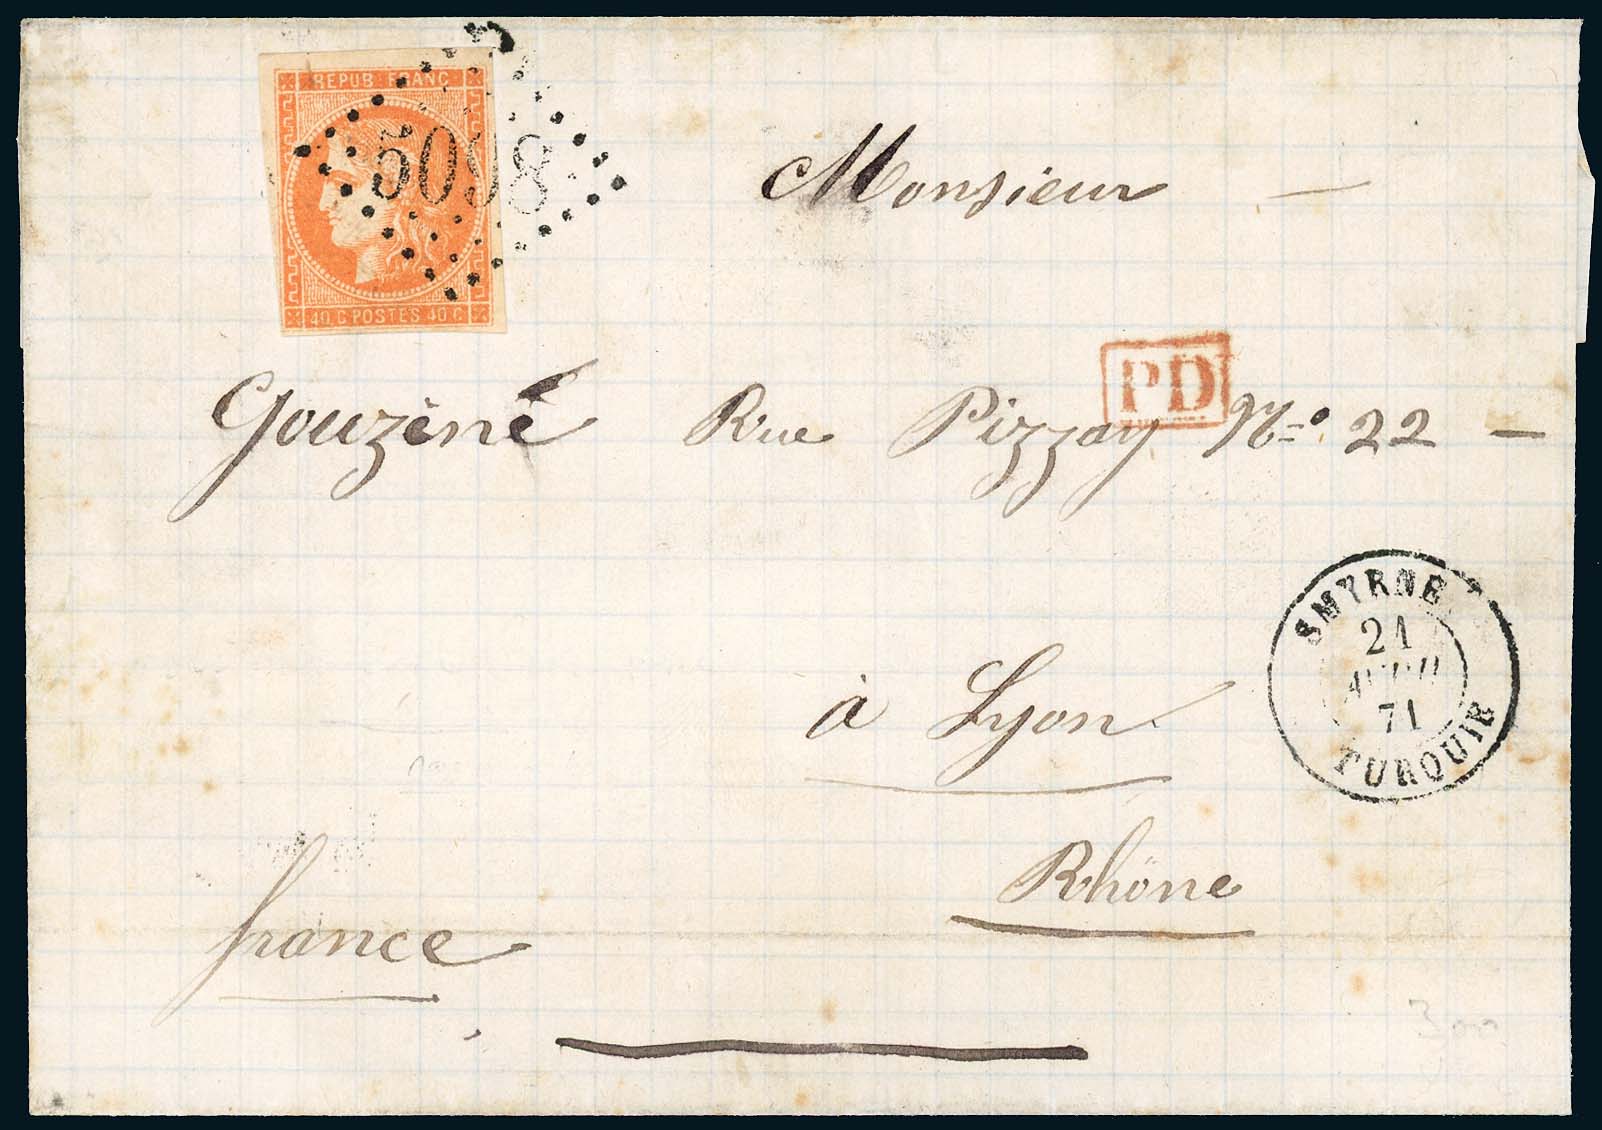 REPUB FRANC
5098
40 C POSTES 40 C
Monsieur —
PD
Gouzéné Rue Pizzay No. 22 —
SMYRNE
21
AVRIL
71
TURQUIE
à Lyon
Rhône
france
300